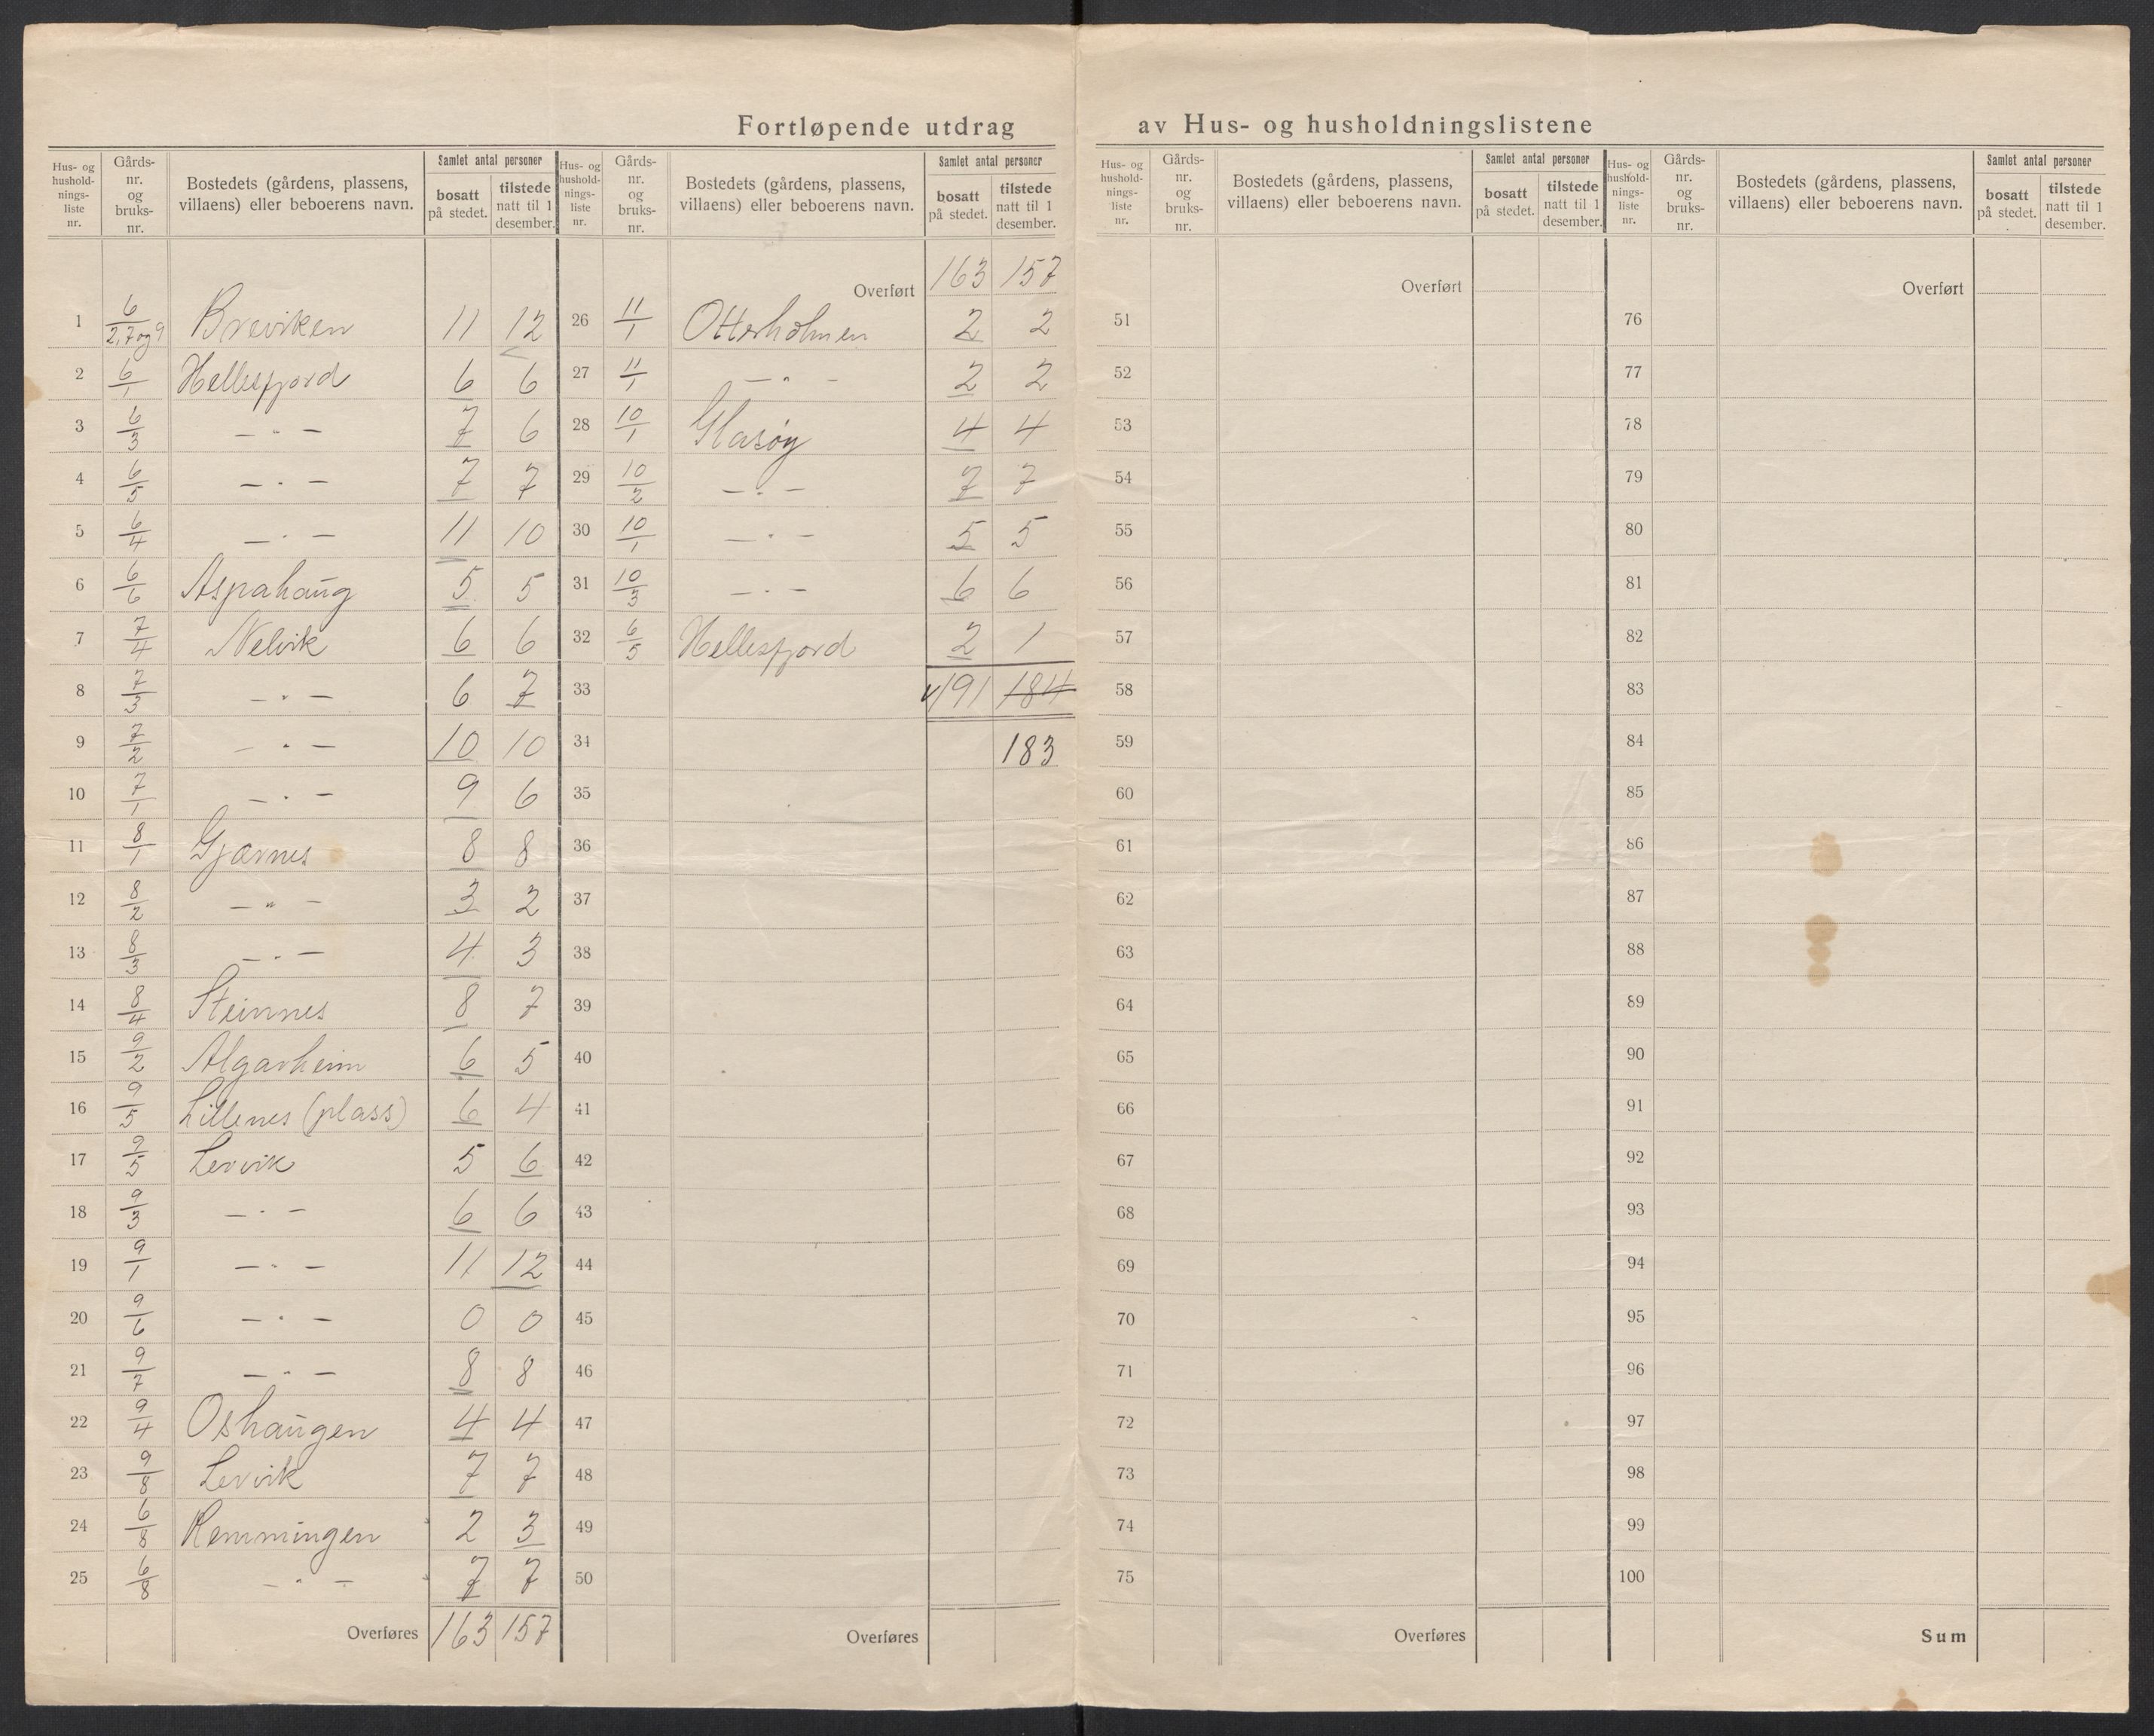 Fortløpende utdrag av Hus- og husholdningslistene
Hus- og hushold- nings- liste nr. | Gårds- nr. og bruks- nr. | Bostedets (gårdens, plassens, villaens) eller beboerens navn. | Samlet antal personer bosatt på stedet. | tilstede natt til 1 desember.
1 6/2,7 og 9 Breviken 11 12
2 6/1 Hellesfjord 6 6
3 6/3 — " — 7 6
4 6/5 — " — 7 7
5 6/4 — " — 11 10
6 6/6 Aspahaug 5 5
7 7/4 Nelvik 6 6
8 7/3 — " — 6 7
9 7/2 — " — 10 10
10 7/1 — " — 9 6
11 8/1 Gjærnes 8 8
12 8/2 — " — 3 2
13 8/3 — " — 4 3
14 8/4 Steinnes 8 7
15 9/2 Algarheim 6 5
16 9/5 Lillenes (plass) 6 4
17 9/5 Lervik 5 6
18 9/3 — " — 6 6
19 9/1 — " — 11 12
20 9/6 — " — 0 0
21 9/7 — " — 8 8
22 9/4 Oshaugen 4 4
23 9/8 Lervik 7 7
24 6/8 Hemmingen 2 3
25 6/8 — " — 7 7
Overføres 163 157
Hus- og hushold- nings- liste nr. | Gårds- nr. og bruks- nr. | Bostedets (gårdens, plassens, villaens) eller beboerens navn. | Samlet antal personer bosatt på stedet. | tilstede natt til 1 desember.
Overført 163 157
26 11/1 Otterholmen 2 2
27 11/1 — " — 2 2
28 10/1 Glasøy 4 4
29 10/2 — " — 7 7
30 10/1 — " — 5 5
31 10/3 — " — 6 6
32 6/5 Hellesfjord 2 1
33 191 184
34 183
35
36
37
38
39
40
41
42
43
44
45
46
47
48
49
50
Overføres
Hus- og hushold- nings- liste nr. | Gårds- nr. og bruks- nr. | Bostedets (gårdens, plassens, villaens) eller beboerens navn. | Samlet antal personer bosatt på stedet. | tilstede natt til 1 desember.
Overført
51
52
53
54
55
56
57
58
59
60
61
62
63
64
65
66
67
68
69
70
71
72
73
74
75
Overføres
Hus- og hushold- nings- liste nr. | Gårds- nr. og bruks- nr. | Bostedets (gårdens, plassens, villaens) eller beboerens navn. | Samlet antal personer bosatt på stedet. | tilstede natt til 1 desember.
Overført
76
77
78
79
80
81
82
83
84
85
86
87
88
89
90
91
92
93
94
95
96
97
98
99
100
Sum